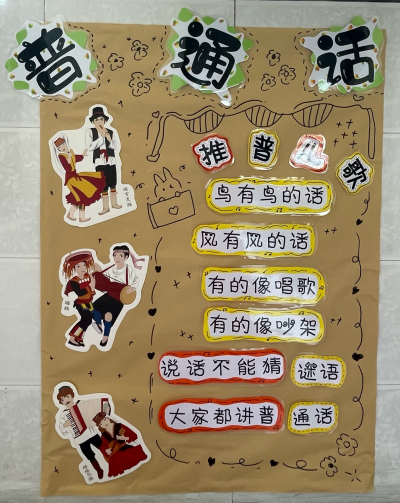 普通话
推普儿歌
鸟有鸟的话
风有风的话
有的像唱歌
有的像吵架
说话不能猜谜语
大家都讲普通话